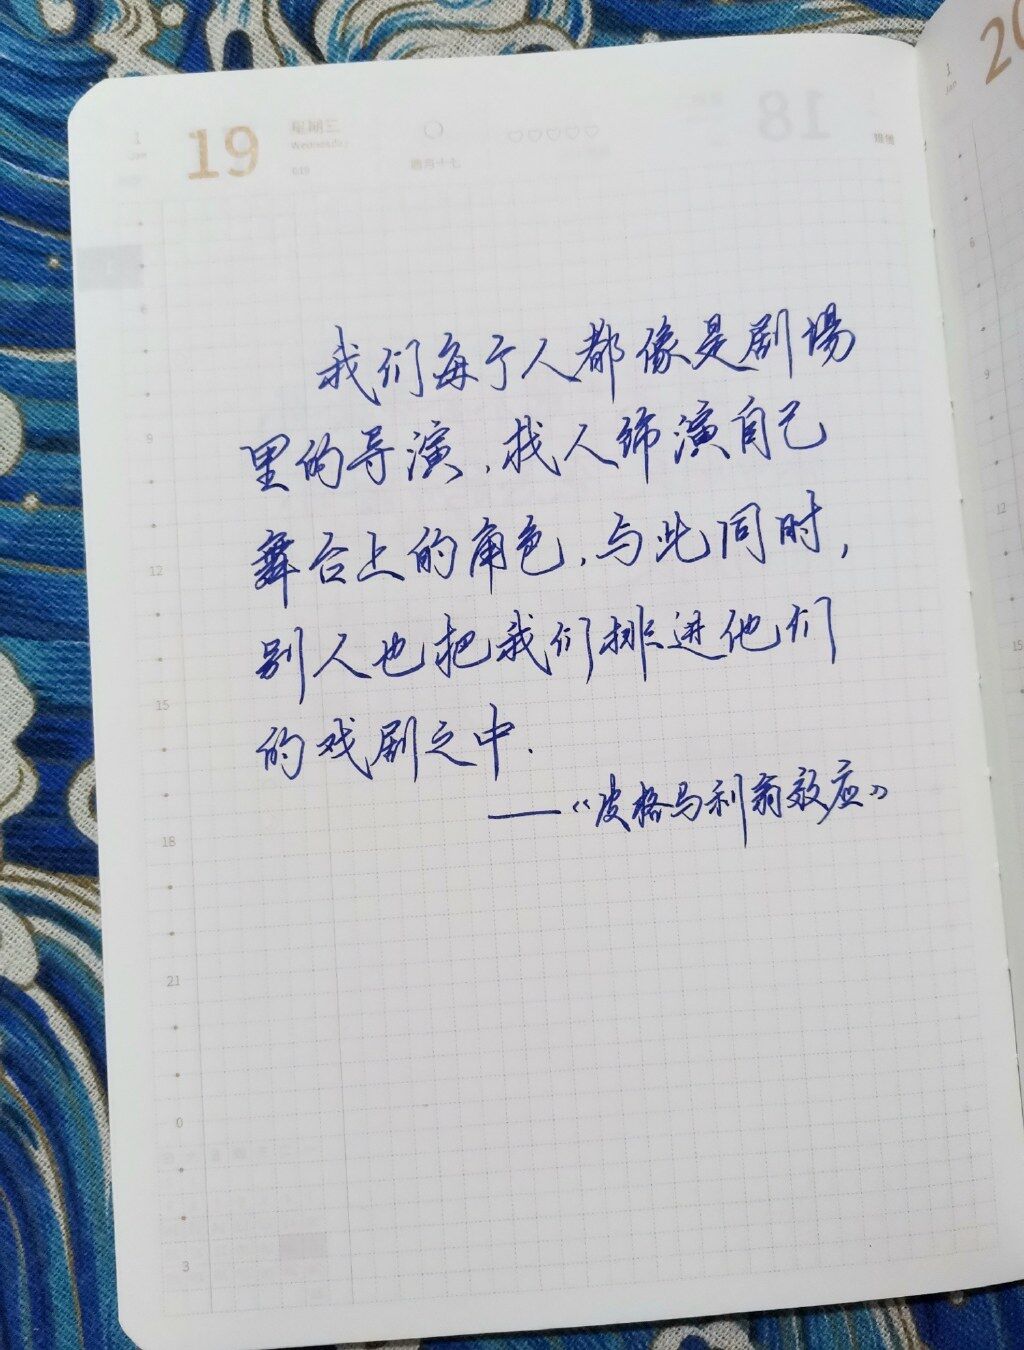 1
JAN
19
星期三
Wednesday
019
腊月十七
18
1
JAN
20
我们每个人都像是剧場
里的导演,找人饰演自己
舞台上的角色,与此同时,
别人也把我们排进他们
的戏剧之中.
——《皮格马利翁效应》
9
12
15
18
21
0
3
6
9
12
15